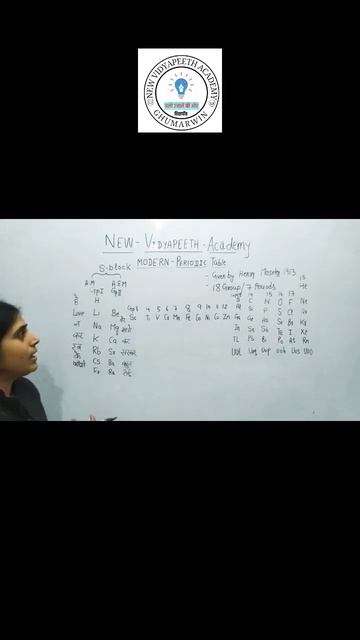 NEW VIDYAPEETH ACADEMY
GHUMARWIN
NEW-VIDYAPEETH-Academy
S-block
MODERN-PERIODIC Table
- Given by Henry Moseley 1913
- 18 Group/7 Periods
A·M A·E·M
GpII
18
He
H
Love Li Be
Gp3 4 5 6 7 8 9 10 11 12
14 15 16 17
C N O F Ne
Na Mg
Sc Ti V Cr Mn Fe Co Ni Cu Zn Ga
Si P S Cl
K Ca कर
Ge As Se Br Kr
Rb Sr सरकार
In Sn Sb Te I Xe
के Cs Ba बहुत
TL Pb Bi Po At Rn
Fr Ra
Uut Uuq Uup Uuh Uus Uuo